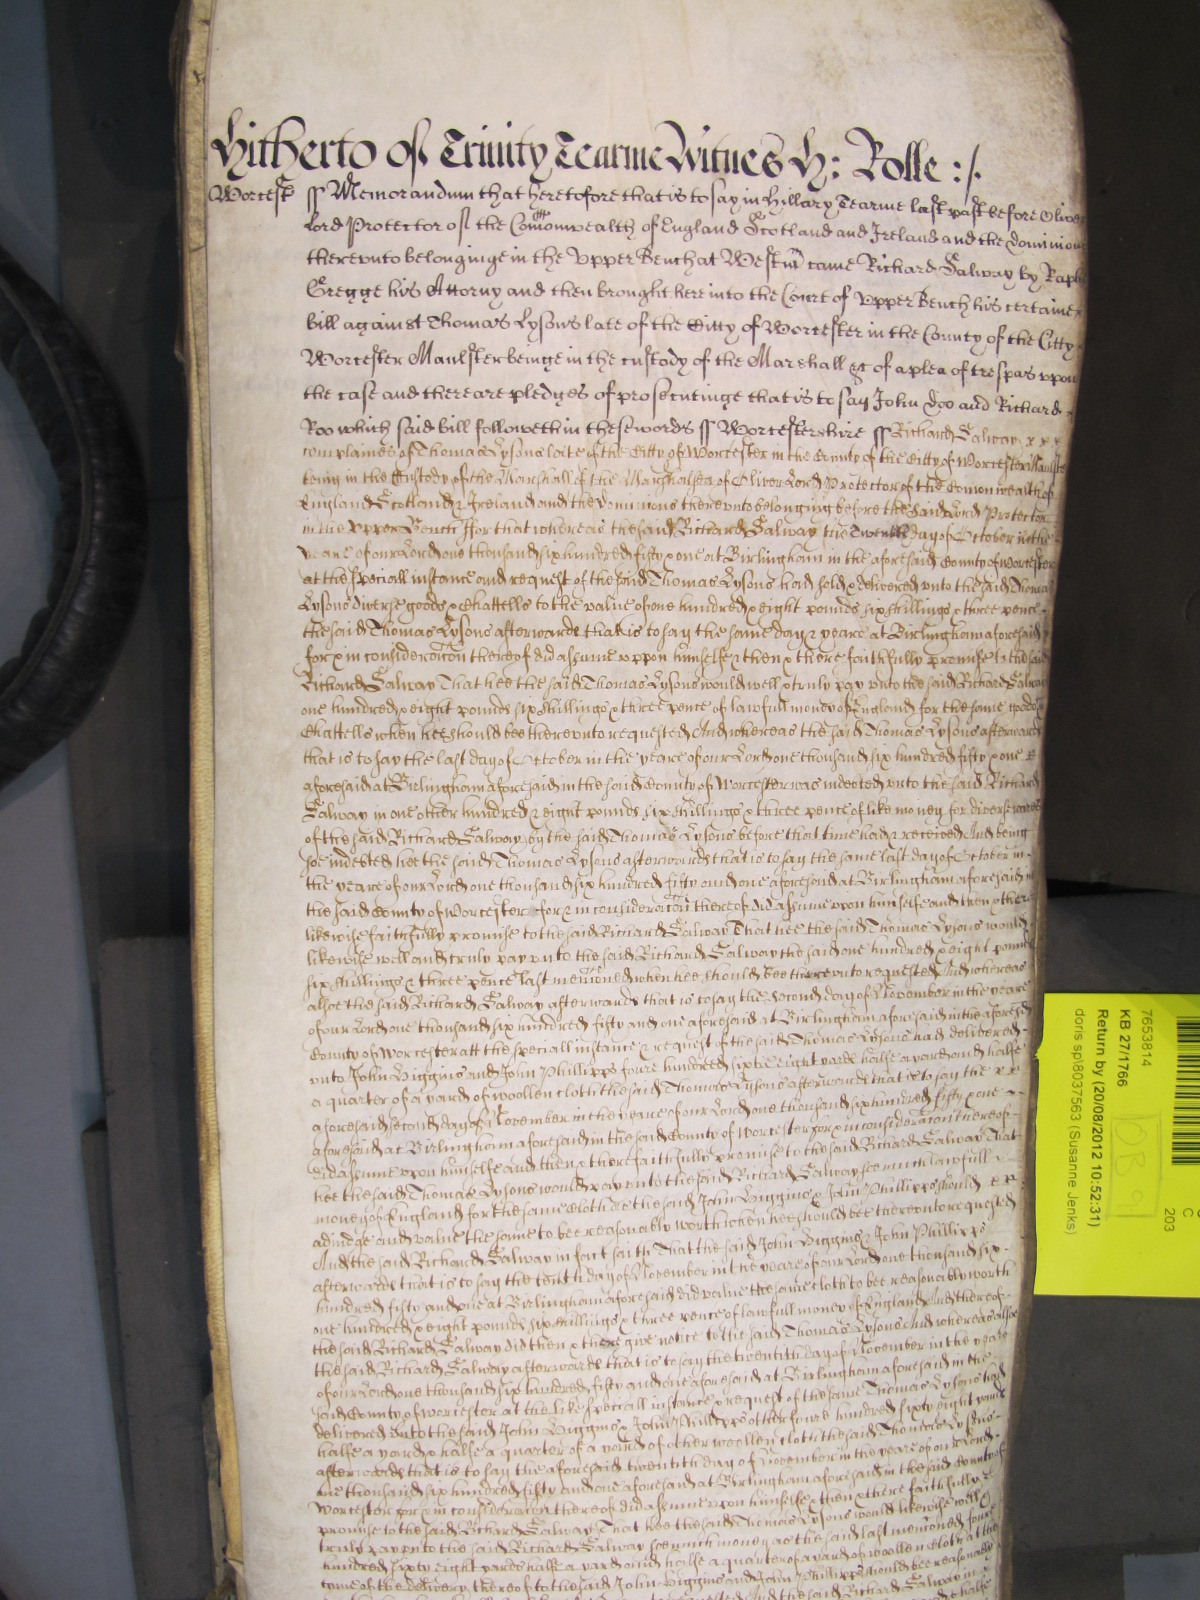 Hitherto of Trinity Tearme Witnes H: Rolle :/.
Worcest ss Memorandum that heretofore that is to say in Hillary Tearme last past before Oliver
Lord Protector of the Comonwealth of England Scotland and Ireland and the dominions
therevnto belonginge in the Vpper Bench at Westm came Richard Salway by
Gregge his Attorny and then brought here into the Court of Vpper Bench his certaine
bill against Thomas Lysons late of the Citty of Worcester in the County of the Citty
Worcester Maulster beinge in the custody of the Marshall &c of a plea of trespas vpon
the case and there are pledges of prosecutinge that is to say John Doo and Richard
Roo which said bill followeth in these words ss Worcestershire ss Richard Salway
complaines of Thomas Lysons late of the Citty of Worcester in the County of the Citty of Worcester
being in the Custody of the Marshall of the Marshalsea of Oliver Lord Protector of the Comonwealth of
England Scotland & Ireland and the Dominions therevnto belonging before the said Lord Protector
in the Vpper Bench ffor that whereas the said Richard Salway the day of October in the
yeare of our Lord one thousand six hundred fifty & one at Birlingham in the aforesaid County of Worcester
at the speciall instance and request of the said Thomas Lysons had sold & delivered vnto the said Thomas
Lysons diverse goods & Chattells to the value of one hundred & eight pounds six shillings & three pence
the said Thomas Lysons afterwards that is to say the same day & yeare at Birlingham aforesaid
for & in consideracon thereof did assume vppon himselfe & then & there faithfully promise to the said
Richard Salway That hee the said Thomas Lysons would well & truly pay vnto the said Richard Salway
one hundred & eight pounds six shillings & three pence of lawfull money of England for the same goods &
Chattells when hee should bee therevnto requested And whereas the said Thomas Lysons afterwards
that is to say the last day of October in the yeare of our Lord one thousand six hundred fifty & one
aforesaid at Birlingham aforesaid in the said County of Worcester was indebted vnto the said Richard
Salway in one other hundred & eight pounds six shillings & three pence of like money for diverse wares
of the said Richard Salway by the said Thomas Lysons before that time had & received And being
soe indebted hee the said Thomas Lysons afterwards that is to say the same last day of October in
the yeare of our Lord one thousand six hundred fifty and one aforesaid at Birlingham aforesaid in
the said County of Worcester for & in consideracon thereof did assume vpon himselfe and then & there
likewise faithfully promise to the said Richard Salway That hee the said Thomas Lysons would
likewise well and truly pay vnto the said Richard Salway the said one hundred & eight pounds
six shillings & three pence last mencioned when hee should bee therevnto requested And whereas
alsoe the said Richard Salway afterwards that is to say the second day of November in the yeare
of our Lord one thousand six hundred fifty and one aforesaid at Birlingham aforesaid in the aforesaid
County of Worcester att the speciall instance & request of the said Thomas Lysons had delivered
vnto John Higgins and John Phillipps foure hundred sixtie eight yards halfe a yard and halfe
a quarter of a yard of woollen cloth the said Thomas Lysons afterwards that is to say the
aforesaid second day of November in the yeare of our Lord one thousand six hundred fifty & one
aforesaid at Birlingham aforesaid in the said County of Worcester for & in consideracon thereof
did assume vpon himselfe and then & there faithfully promise to the said Richard Salway That
hee the said Thomas Lysons would pay vnto the said Richard Salway soe much lawfull
money of England for the same cloth as the said John Higgins & John Phillipps should
adiudge and value the same to bee reasonably worth when hee should bee therevnto requested
And the said Richard Salway in fact saith That the said John Higgins & John Phillipps
afterwards that is to say the tenth day of November in the yeare of our Lord one thousand six
hundred fifty and one at Birlingham aforesaid did value the same cloth to bee reasonably worth
one hundred & eight pounds six shillings & three pence of lawfull money of England And thereof
the said Richard Salway did then & there give notice to the said Thomas Lysons And whereas alsoe
the said Richard Salway afterwards that is to say the twentith day of November in the yeare
of our Lord one thousand six hundred fifty and one aforesaid at Birlingham aforesaid in the
said County of Worcester at the like speciall instance & request of the same Thomas Lysons had
delivered vnto the said John Higgins & John Phillipps other foure hundred sixty eight yards
halfe a yard & halfe a quarter of a yard of other woollen cloth the said Thomas Lysons
afterwards that is to say the aforesaid twentith day of November in the yeare of our Lord
one thousand six hundred fifty and one aforesaid at Birlingham aforesaid in the said County of
Worcester for & in consideracon thereof did assume vpon himselfe & then & there faithfully
promise to the said Richard Salway That hee the said Thomas Lysons would likewise well &
truly pay vnto the said Richard Salway soe much money as the said last mencioned foure
hundred sixty eight yards halfe a yard and halfe a quarter of a yard of woollen cloth at the
tyme of the delivery thereof to the said John Higgins and John Phillipps should bee reasonably
And the said Richard Salway in
7653814
KB 27/1766
Return by (20/08/2012 10:52:31)
doris sp\8037563 (Susanne Jenks)
C
203